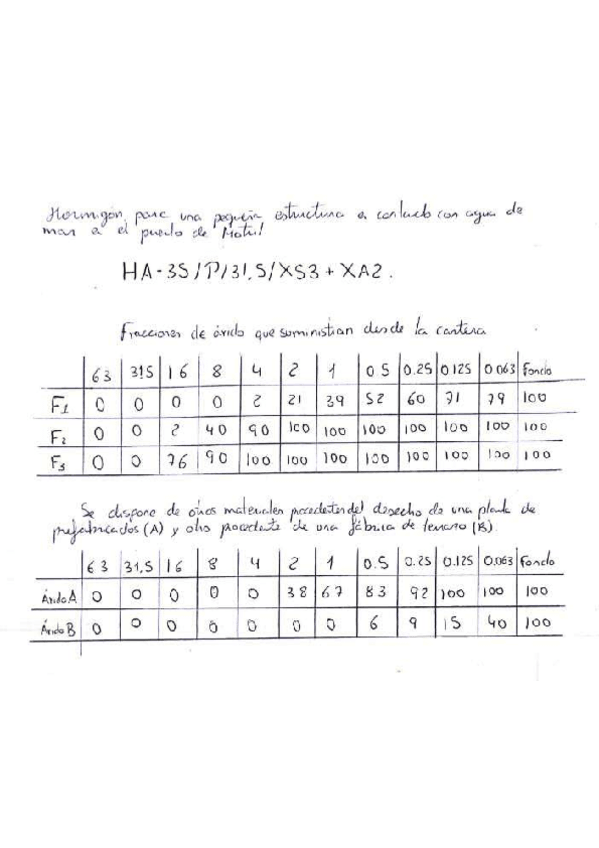 Hormigón para una pequeña estructura en contacto con agua de
mar en el puerto de Motril
HA-35/P/31,5/XS3 + XA2.
Fracciones de árido que suministran desde la cantera
63 31,5 16 8 4 2 1 0.5 0.25 0.125 0.063 Fondo
F1 0 0 0 0 2 21 39 52 60 71 79 100
F2 0 0 2 40 90 100 100 100 100 100 100 100
F3 0 0 76 90 100 100 100 100 100 100 100 100
Se dispone de otros materiales procedentes del desecho de una planta de
prefabricados (A) y otro procedente de una fábrica de terrazo (B).
63 31,5 16 8 4 2 1 0.5 0.25 0.125 0.063 Fondo
Árido A 0 0 0 0 0 38 67 83 92 100 100 100
Árido B 0 0 0 0 0 0 0 6 9 15 40 100